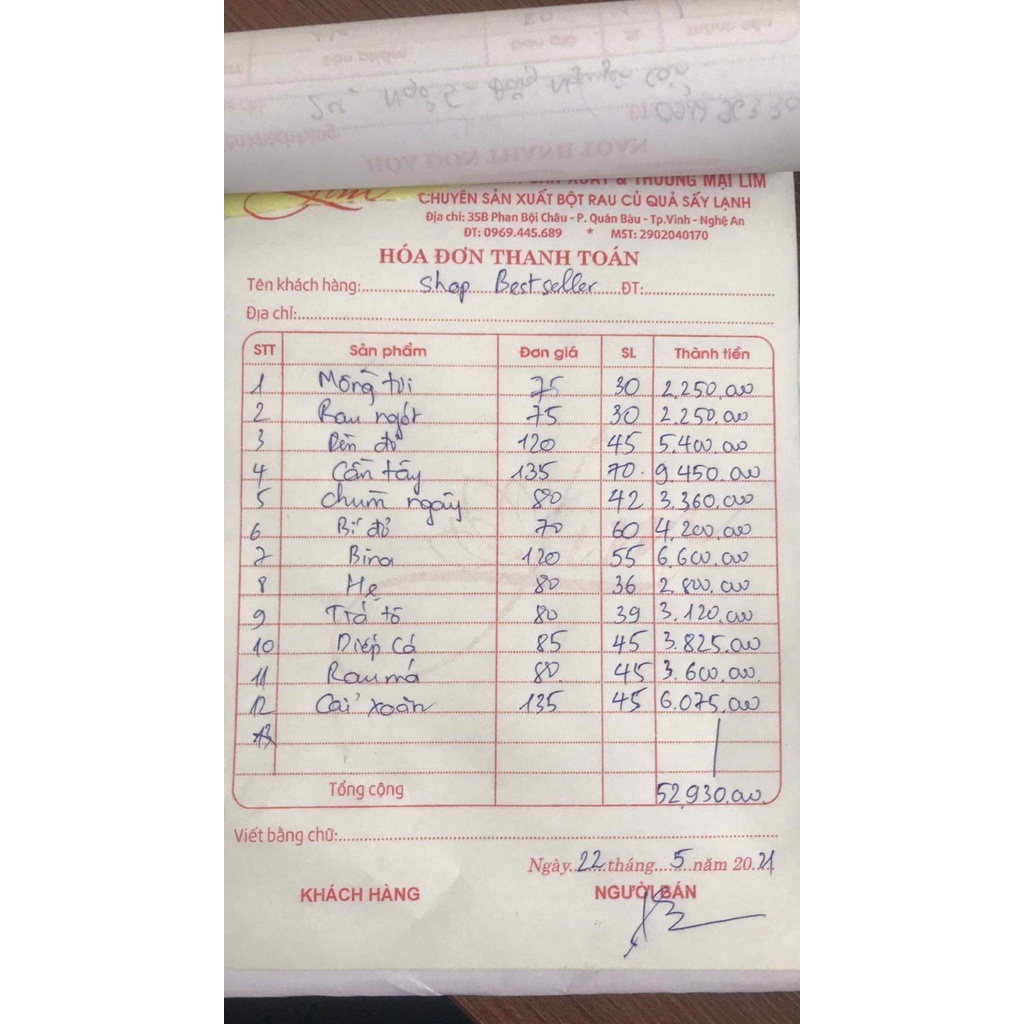 XUẤT & THƯƠNG MẠI LIM
CHUYÊN SẢN XUẤT BỘT RAU CỦ QUẢ SẤY LẠNH
Địa chỉ: 35B Phan Bội Châu - P. Quán Bàu - Tp.Vinh - Nghệ An
ĐT: 0969.445.689 * MST: 2902040170
HÓA ĐƠN THANH TOÁN
Tên khách hàng: Shop Bestseller ĐT:
Địa chỉ:
STT Sản phẩm Đơn giá SL Thành tiền
1 Mồng tơi 75 30 2.250.000
2 Rau ngót 75 30 2.250.000
3 Dền đỏ 120 45 5.400.000
4 Cần tây 135 70 9.450.000
5 Chùm ngây 80 42 3.360.000
6 Bí đỏ 70 60 4.200.000
7 Bina 120 55 6.600.000
8 Hẹ 80 36 2.800.000
9 Tía tô 80 39 3.120.000
10 Diếp cá 85 45 3.825.000
11 Rau má 80 45 3.600.000
12 Cải xoăn 135 45 6.075.000
Tổng cộng 52.930.000
Viết bằng chữ:
Ngày 22 tháng 5 năm 2021
KHÁCH HÀNG NGƯỜI BÁN